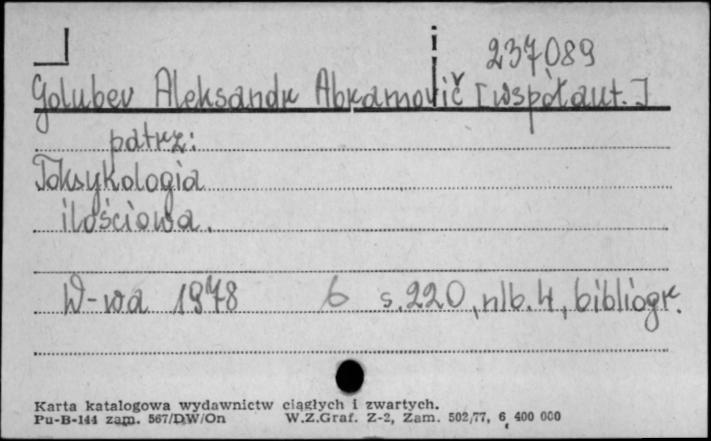 237089
Golubev Aleksandr Abramovič [współaut.]
patrz:
Toksykologia
ilościowa.
W-wa 1978 6 s.220, nlb.4, bibliogr.
Karta katalogowa wydawnictw ciągłych i zwartych.
Pu-B-144 zam. 567/DW/On W.Z.Graf. Z-2, Zam. 502/77, 6 400 000